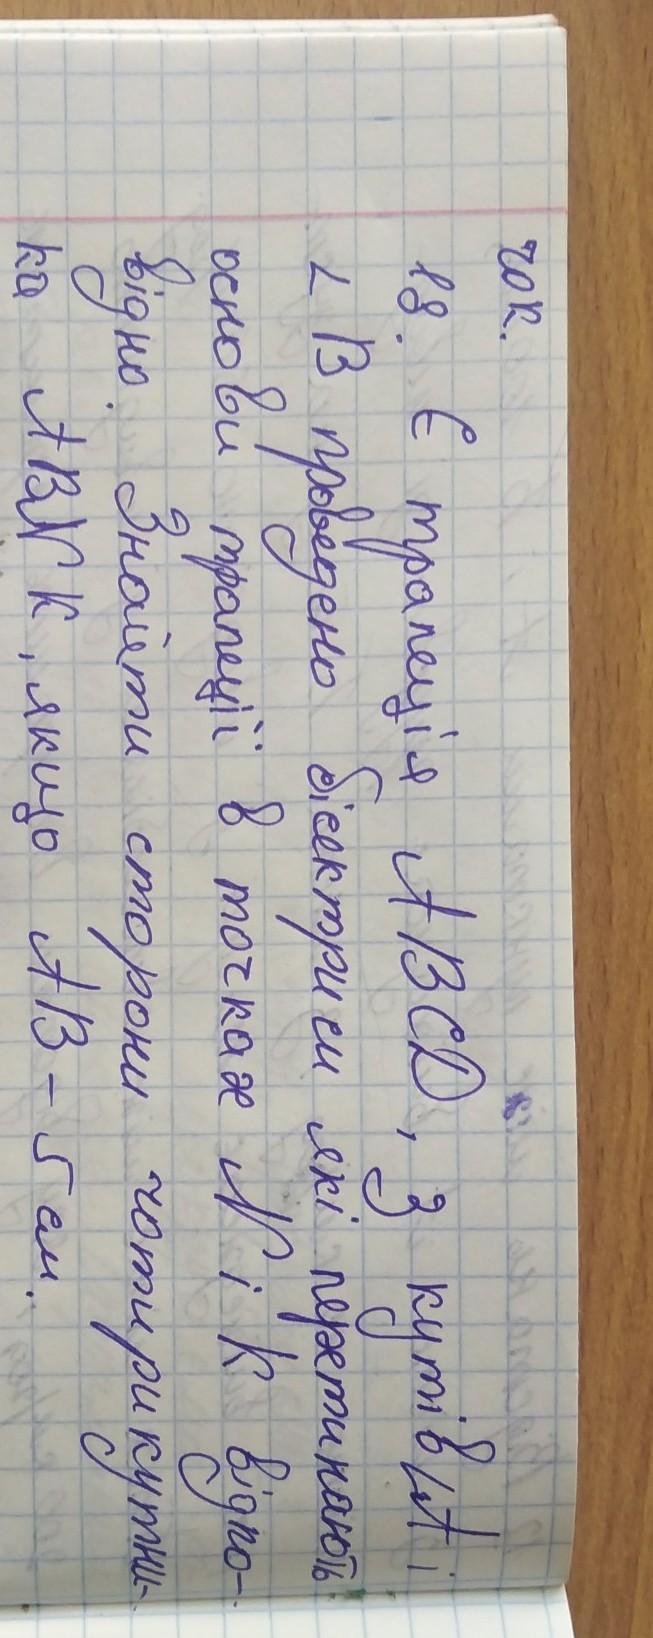 чок.
18. Є трапеція ABCD, з кутів ∠A і
∠ B проведено бісектриси які перетинають
основи трапеції в точках N і K відпо-
відно. Знайти сторони чотирикутни-
ка ABNK, якщо AB - 5 см.